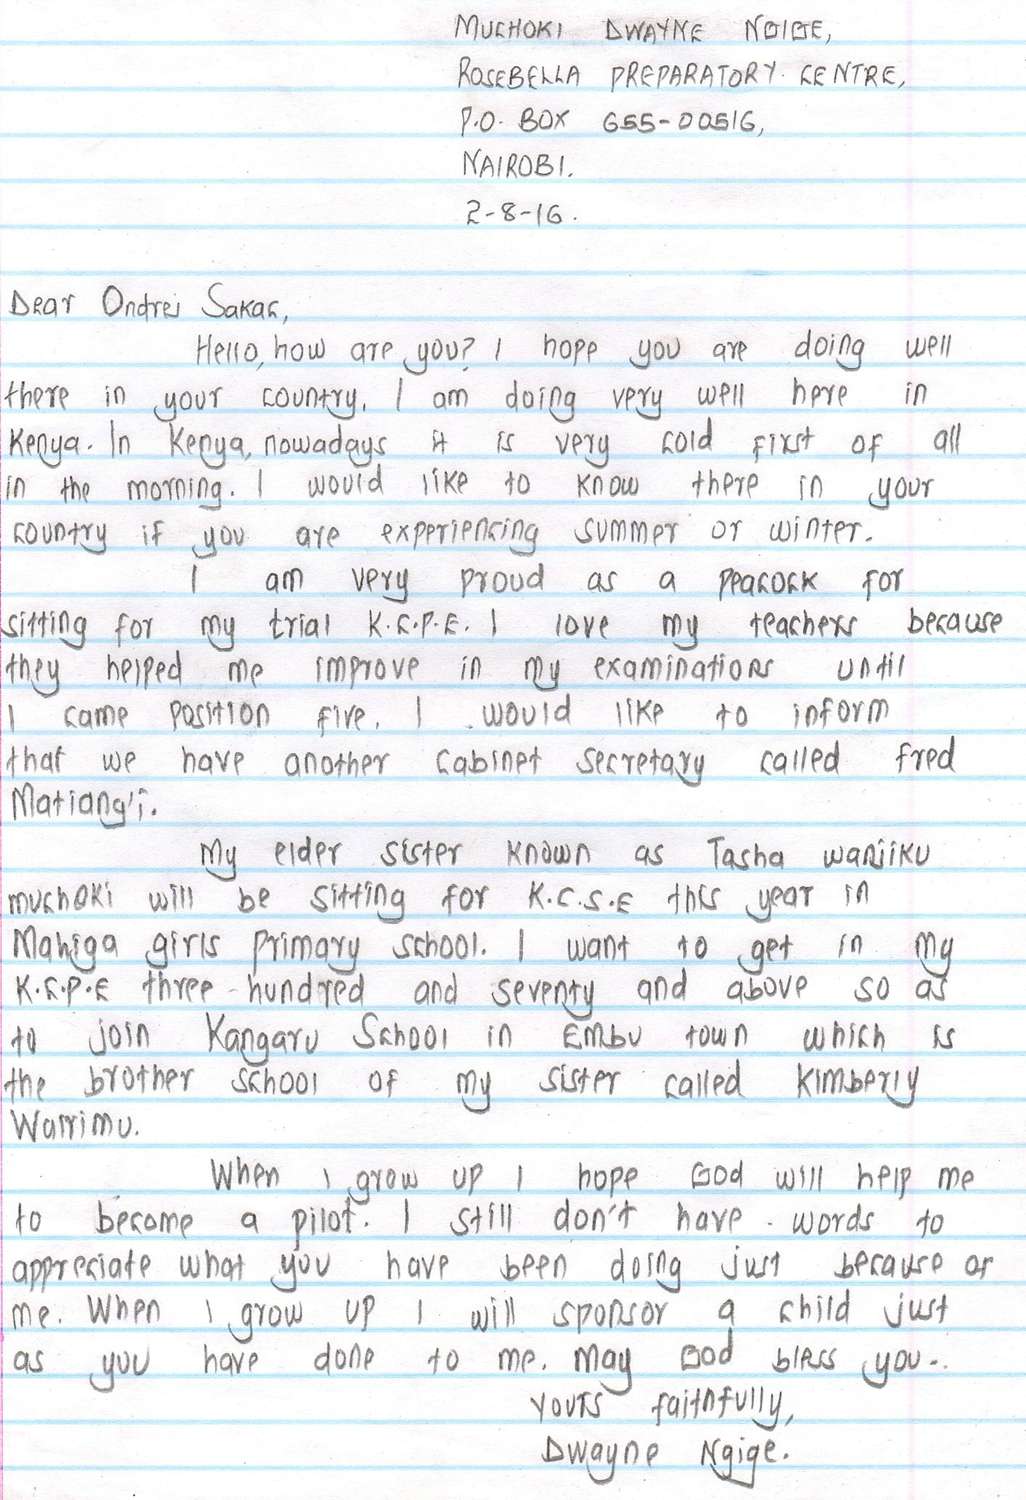 MUCHOKI DWAYNE NGIGE,
ROSEBELLA PREPARATORY CENTRE,
P.O. BOX 655-00516,
NAIROBI.
2-8-16.
Dear Ondrej Sakac,
Hello, how are you? I hope you are doing well
there in your country. I am doing very well here in
Kenya. In Kenya, nowadays it is very cold first of all
in the morning. I would like to know there in your
country if you are experiencing summer or winter.
I am very proud as a peacock for
sitting for my trial K.C.P.E. I love my teachers because
they helped me improve in my examinations until
I came position five. I would like to inform
that we have another Cabinet Secretary called Fred
Matiang'i.
My elder sister known as Tasha wanjiku
muchoki will be sitting for K.C.S.E this year in
Mahiga girls primary school. I want to get in my
K.C.P.E three-hundred and seventy and above so as
to join Kangaru School in Embu town which is
the brother school of my sister called Kimberly
Wairimu.
When I grow up I hope God will help me
to become a pilot. I still don't have words to
appreciate what you have been doing just because of
me. When I grow up I will sponsor a child just
as you have done to me. May God bless you..
Yours faithfully,
Dwayne Ngige.